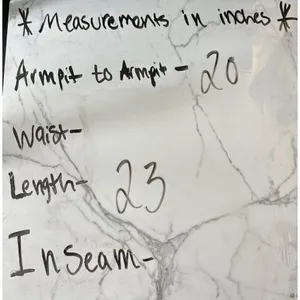 * Measurements in inches *
Armpit to Armpit - 20
Waist -
Length - 23
Inseam -